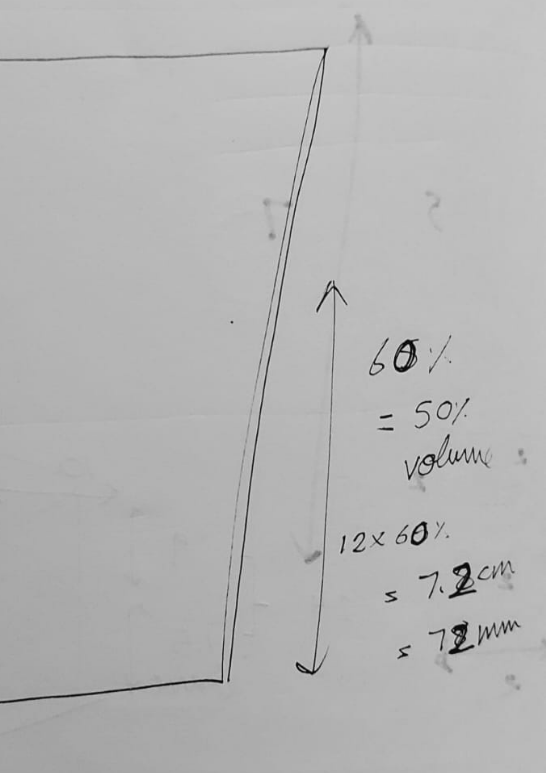 60%
= 50%
volume
12 x 60%
= 7.2cm
= 72mm